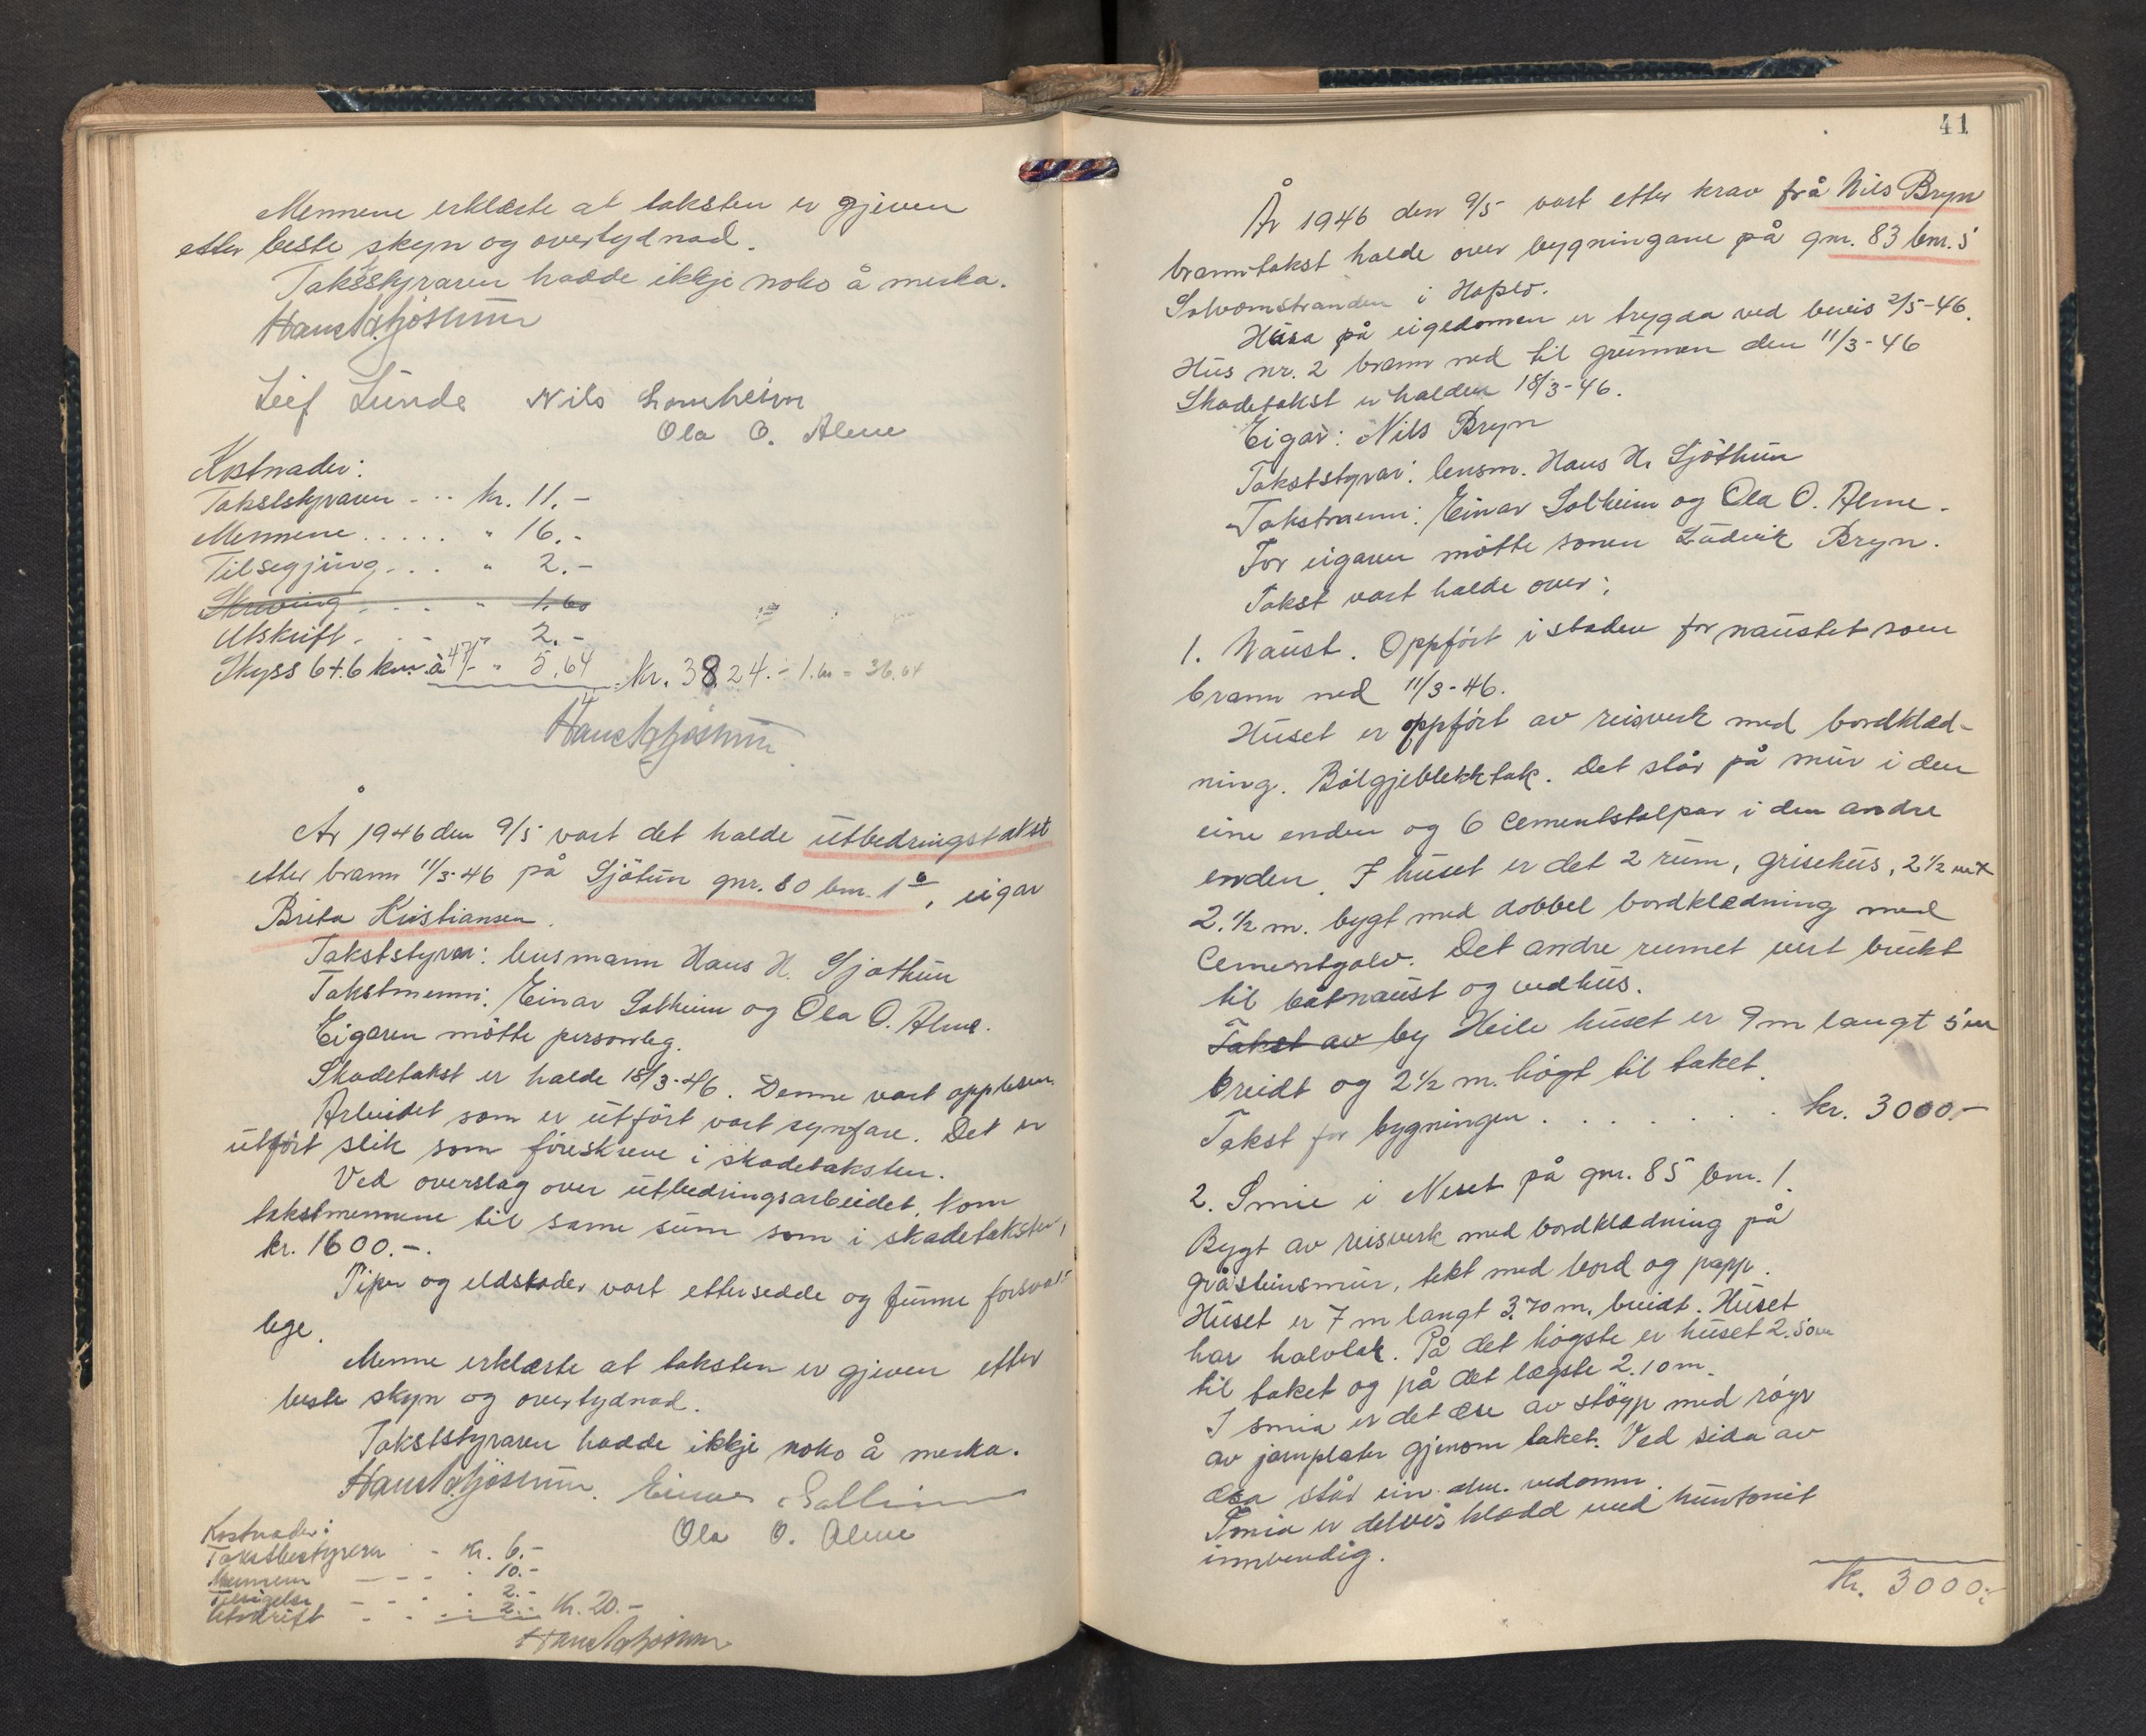 Mennene erklærte at taksten er gjeven
etter beste skyn og overtydnad.
Takstskyraren hadde ikkje noko å merka.
Hans H. Sjøthun
Leif Lunde Nils Lomheim
Ola O. Alme
Kostnader:
Takstskyraren - .. kr. 11.-
Mennene ..... " 16.-
Tilsegjing ... " 2.-
Skriving ... " 1.60
Utskrift . . - " 2.-
Skyss 6+6 km. à 47/- " 5,64 Kr. 38.24 ÷ 1.60 = 36.64
Hans H Sjøthun
År 1946 den 9/5 vart det halde utbedringstakst
etter brann 11/3-46 på Sjötun gnr. 80 bnr. 1 6, eigar
Brita Kristiansen.
Takststyrar: lensmann Hans H. Sjøthun
Takstmenn: Einar Solheim og Ola O. Alme.
Eigaren møtte personleg.
Skadetakst er halde 18/3-46. Denne vart opplesen.
Arbeidet som er utført vart synfare. Det er
utført slik som föreskreve i skadetaksten.
Ved overslag over utbedringsarbeidet, kom
takstmennene til same sum som i skadetaksten,
kr. 1600.-.
Piper og eldstader vart ettersedde og funne forsvar-
lege.
Menne erklærte at taksten er gjeven etter
beste skyn og overtydnad.
Takststyraren hadde ikkje noko å merka.
Hans H. Sjøthun. Einar Solheim
Ola O. Alme
Kostnader:
Takstbestyreren - Kr. 6.-
Mennene - - - . 10.-
Tilsigelse - - . . 2.-
Utskrift - . . . 2.- Kr. 20.-
Hans H Sjøthun
41
År 1946 den 9/5 vart etter krav frå Nils Bryn
branntakst halde over bygningane på gnr. 83 bnr. 5
Solvomstranden i Hopso.
Husa på eigedomen er trygda ved bevis 2/5-46.
Hus nr. 2 brann ned til grunnen den 11/3-46
Skadetakst er halden 18/3-46.
Eigar: Nils Bryn
Takststyrar: lensm. Hans H. Sjöthun
Takstmenn: Einar Solheim og Ola O. Alme.
For eigaren møtte sonen Ludvik Bryn.
Takst vart halde over:
1. Naust. Oppført i staden for naustet som
brann ned 11/3-46.
Huset er oppført av reisverk med bordklæd-
ning. Bölgjeblekktak. Det står på mur i den
eine enden og 6 cementstolpar i den andre
enden. I huset er det 2 rum, grisehus, 2 1/2 m x
2. 1/2 m. bygt med dobbel bordklædning med
Cementgolv. Det andre rumet vert brukt
til båtnaust og vedhus.
Takst av by Heile huset er 9 m langt 5 m
breidt og 2 1/2 m. högt til taket.
Takst for bygningen . . . . . . . kr. 3000.-
2. Smie i Neset på gnr. 85 bnr. 1.
Bygt av reisverk med bordklædning på
gråsteinsmur, tekt med bord og papp.
Huset er 7 m langt 3.70 m. breidt. Huset
har halvtak. På det högste er huset 2.50 m
til taket og på det lægste 2.10 m.
I smia er det ese av støyp med röyr
av jarnplater gjenom taket. Ved sida av
esa står ein alm. vedomn.
Smia er delvis klædd med huntonit
innvendig.
kr. 3000.-